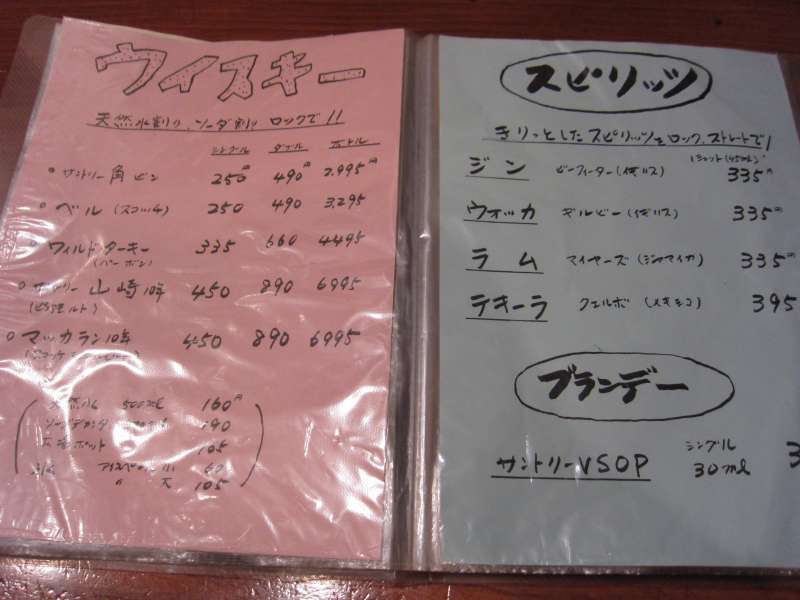 ウイスキー
天然水割り、ソーダ割り ロックで!!
シングル ダブル ボトル
サントリー角ビン 250円 490円 2,995円
ベル (スコッチ) 250 490 3,295
ワイルドターキー 335 660 4495
(バーボン)
サントリー山崎10年 450 890 6995
マッカラン10年 450 890 6995
天然水 500ml 160円
190
ポット 105
アイスペール 小 60
〃 大 105
スピリッツ
きりっとしたスピリッツをロック、ストレートで!
1ショット(45ml)
ジン ビーフィーター(イギリス) 335円
ウォッカ ギルビー(イギリス) 335円
ラム マイヤーズ(ジャマイカ) 335円
テキーラ クエルボ(メキシコ) 395
ブランデー
シングル
サントリーVSOP 30ml 3